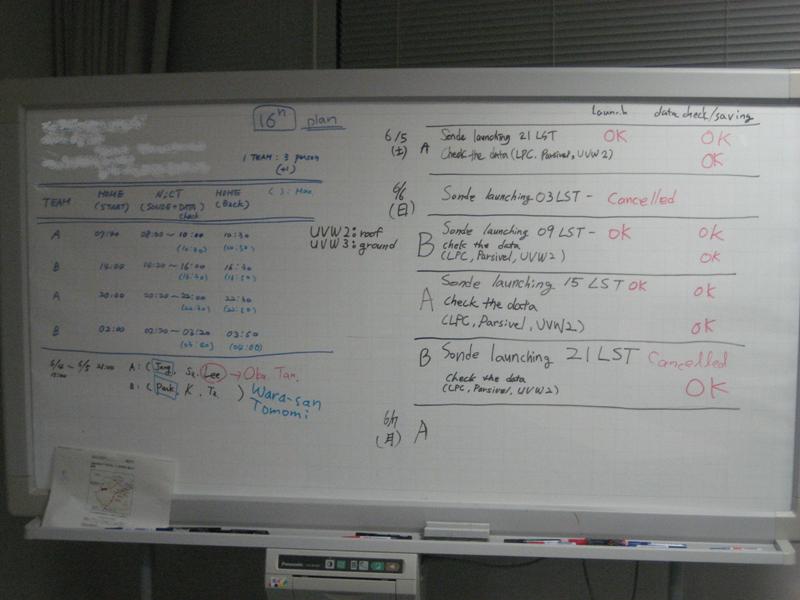 16th plan
1 TEAM : 3 person
(+1)
TEAM HOME (START) NiCT (SONDE+DATA) check HOME (Back) ( ) : Max
A 07:40 08:00 ~ 10:00 10:30
(10:20) (10:50)
B 14:00 14:20 ~ 16:00 16:30
(16:20) (16:50)
A 20:00 20:20 ~ 22:00 22:30
(22:20) (22:50)
B 02:00 02:20 ~ 03:20 03:50
(04:00)
UVW2 : roof
UVW3 : ground
A : ( Jang, Lee → Oka, Tan.
B : ( Park, K, Ta )
Wara-san
Tomomi
Launch data check/saving
6/5 (土) A Sonde launching 21 LST OK OK
Check the data (LPC, Parsivel, UVW2) OK
6/6 (日) Sonde launching 03 LST - Cancelled
B Sonde launching 09 LST - OK OK
chek the data
(LPC, Parsivel, UVW2) OK
A Sonde launching 15 LST OK OK
Check the data
(LPC, Parsivel, UVW2) OK
B Sonde launching 21 LST Cancelled
Check the data
(LPC, Parsivel, UVW2) OK
6/7 (月) A
Panasonic